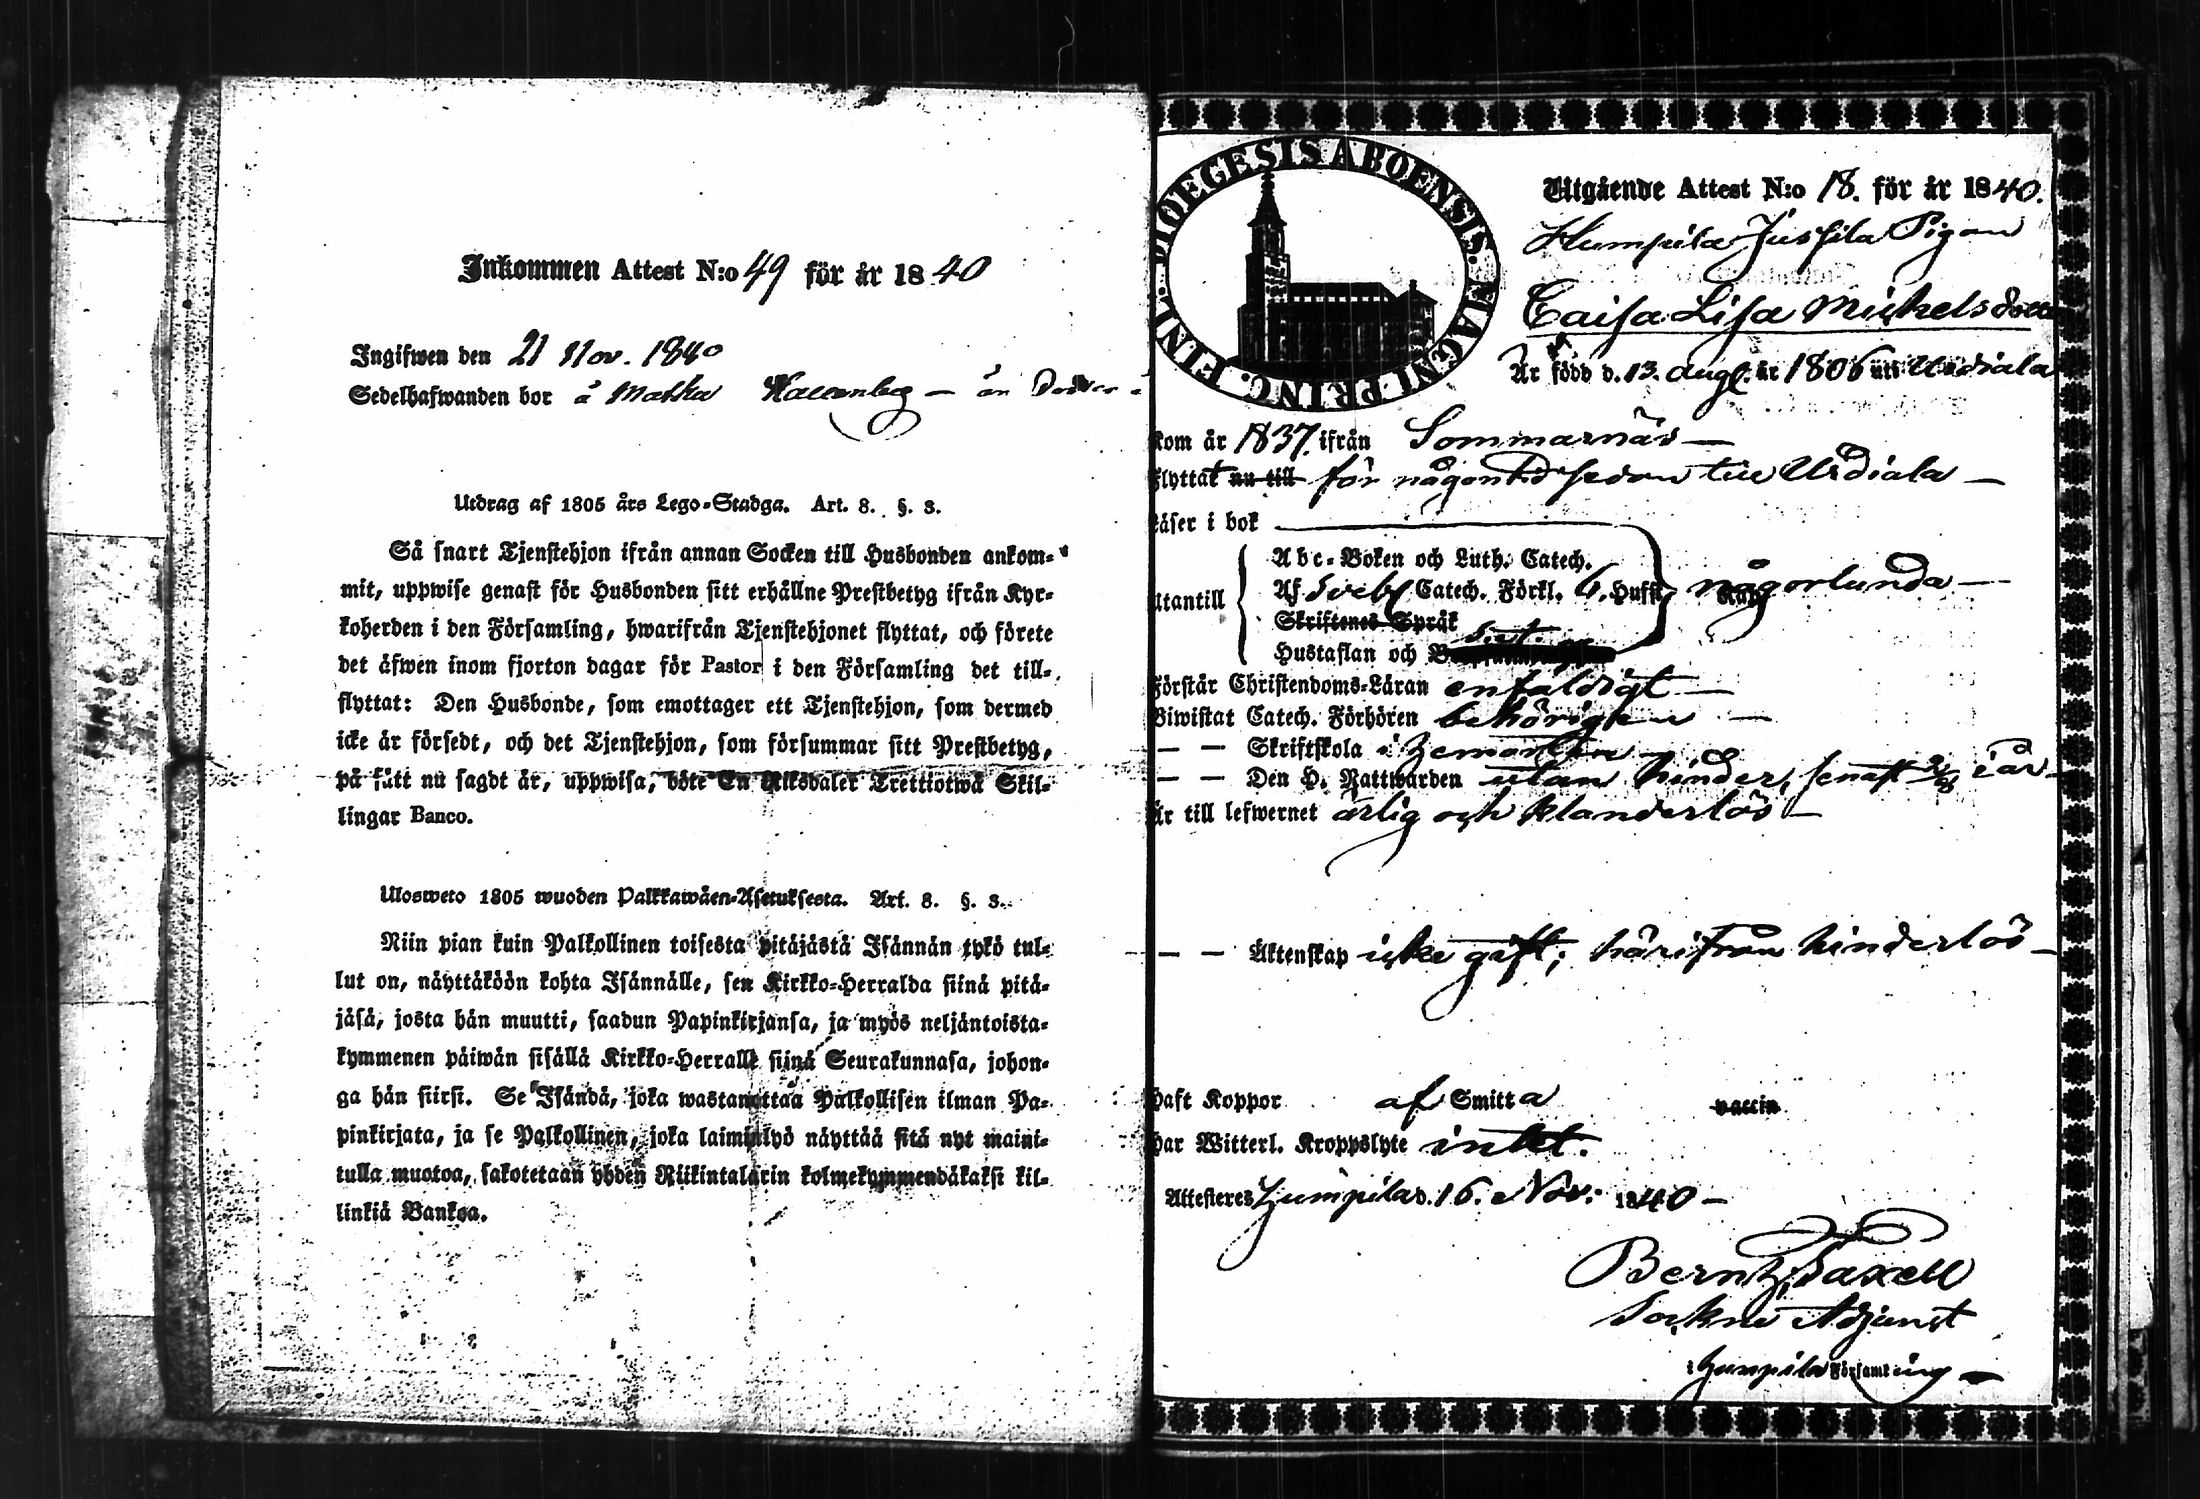 Inkommen Attest N:o 49 för år 1840
Ingifwen den 21 Nov. 1840
Sedelhafwanden bor å Matka
Utdrag af 1805 års Lego-Stadga. Art. 8. §. 3.
Så snart Tjenstehjon ifrån annan Socken till Husbonden ankom-
mit, uppwise genast för Husbonden sitt erhållne Prestbetyg ifrån Kyr-
koherden i den Församling, hwarifrån Tjenstehjonet flyttat, och förete
det äfwen inom fjorton dagar för Pastor i den Församling det till-
flyttat: Den Husbonde, som emottager ett Tjenstehjon, som dermed
icke är försedt, och det Tjenstehjon, som försummar sitt Prestbetyg,
på sätt nu sagdt är, uppwisa, böte En Riksdaler Trettiotwå Skil-
lingar Banco.
Ulosweto 1805 wuoden Palkkawäen-Asetuksesta. Art. 8. §. 3.
Niin pian kuin Palkollinen toisesta pitäjästä Isännän tykö tul-
lut on, näyttäköön kohta Isännälle, sen Kirkko-Herralda siinä pitä-
jäsä, josta hän muutti, saadun Papinkirjansa, ja myös neljäntoista-
kymmenen päiwän sisällä Kirkko-Herralle siinä Seurakunnasa, johon-
ga hän siirsi. Se Isändä, joka wastanottaa Palkollisen ilman Pa-
pinkirjata, ja se Palkollinen, joka laiminlyö näyttää sitä nyt maini-
tulla muotoa, sakotetaan yhden Riikintalarin kolmekymmendäkaksi kil-
linkiä Bankoa.
DIOECESIS ABOENSIS. MAGNI PRINC. FINL.
Utgående Attest N:o 18. för år 1840.
Humpila Jussila Pigan
Caisa Lisa Michelsdotter
Är född d. 13. Aug. år 1806 uti Urdiala
kom år 1837. ifrån Sommarnäs
flyttat nu till för någon tid sedan till Urdiala
läser i bok
Abc-Boken och Luth. Catech.
utantill Af Sveb. Catech. Förkl. 6. Hufst. någorlunda
Skriftenes Språk
Hustaflan och
Förstår Christendoms-Läran enfaldigt
Biwistat Catech. Förhören behörigen
— — Skriftskola
— — Den H. Nattwarden utan hinder, senast i år
Är till lefwernet ärlig och klanderlös
— — Äktenskap icke gift; härifrån hinderlös
haft Koppor af Smitta vaccin
har Witterl. Kroppslyte intet.
Attesteres Humpila d. 16. Nov. 1840
Bernh. Saxell
Sockne Adjunct
i Humpila Församling